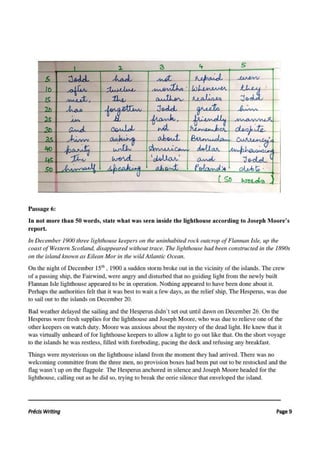 1 2 3 4 5
5 Todd had not repaid even
10 after twelve months. Whenever they
15 meet, the author realises Todd
20 has forgotten Todd greets him
25 in a frank, friendly manner
30 and could not remember despite
35 him asking about Bermudan currency's
40 parity with American dollar emphasising
45 The word 'dollar' and Todd
50 himself speaking about Poland's debts.
[50 words]
Passage 6:
In not more than 50 words, state what was seen inside the lighthouse according to Joseph Moore's
report.
In December 1900 three lighthouse keepers on the uninhabited rock outcrop of Flannan Isle, up the
coast of Western Scotland, disappeared without trace. The lighthouse had been constructed in the 1890s
on the island known as Eilean Mor in the wild Atlantic Ocean.
On the night of December 15th, 1900 a sudden storm broke out in the vicinity of the islands. The crew
of a passing ship, the Fairwind, were angry and disturbed that no guiding light from the newly built
Flannan Isle lighthouse appeared to be in operation. Nothing appeared to have been done about it.
Perhaps the authorities felt that it was best to wait a few days, as the relief ship, The Hesperus, was due
to sail out to the islands on December 20.
Bad weather delayed the sailing and the Hesperus didn't set out until dawn on December 26. On the
Hesperus were fresh supplies for the lighthouse and Joseph Moore, who was due to relieve one of the
other keepers on watch duty. Moore was anxious about the mystery of the dead light. He knew that it
was virtually unheard of for lighthouse keepers to allow a light to go out like that. On the short voyage
to the islands he was restless, filled with foreboding, pacing the deck and refusing any breakfast.
Things were mysterious on the lighthouse island from the moment they had arrived. There was no
welcoming committee from the three men, no provision boxes had been put out to be restocked and the
flag wasn't up on the flagpole. The Hesperus anchored in silence and Joseph Moore headed for the
lighthouse, calling out as he did so, trying to break the eerie silence that enveloped the island.
Précis Writing Page 9